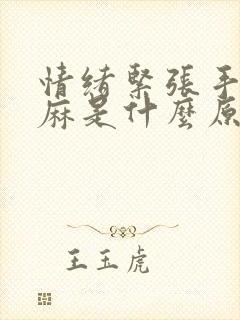 情緒緊張手
麻是什麼原
王玉虎